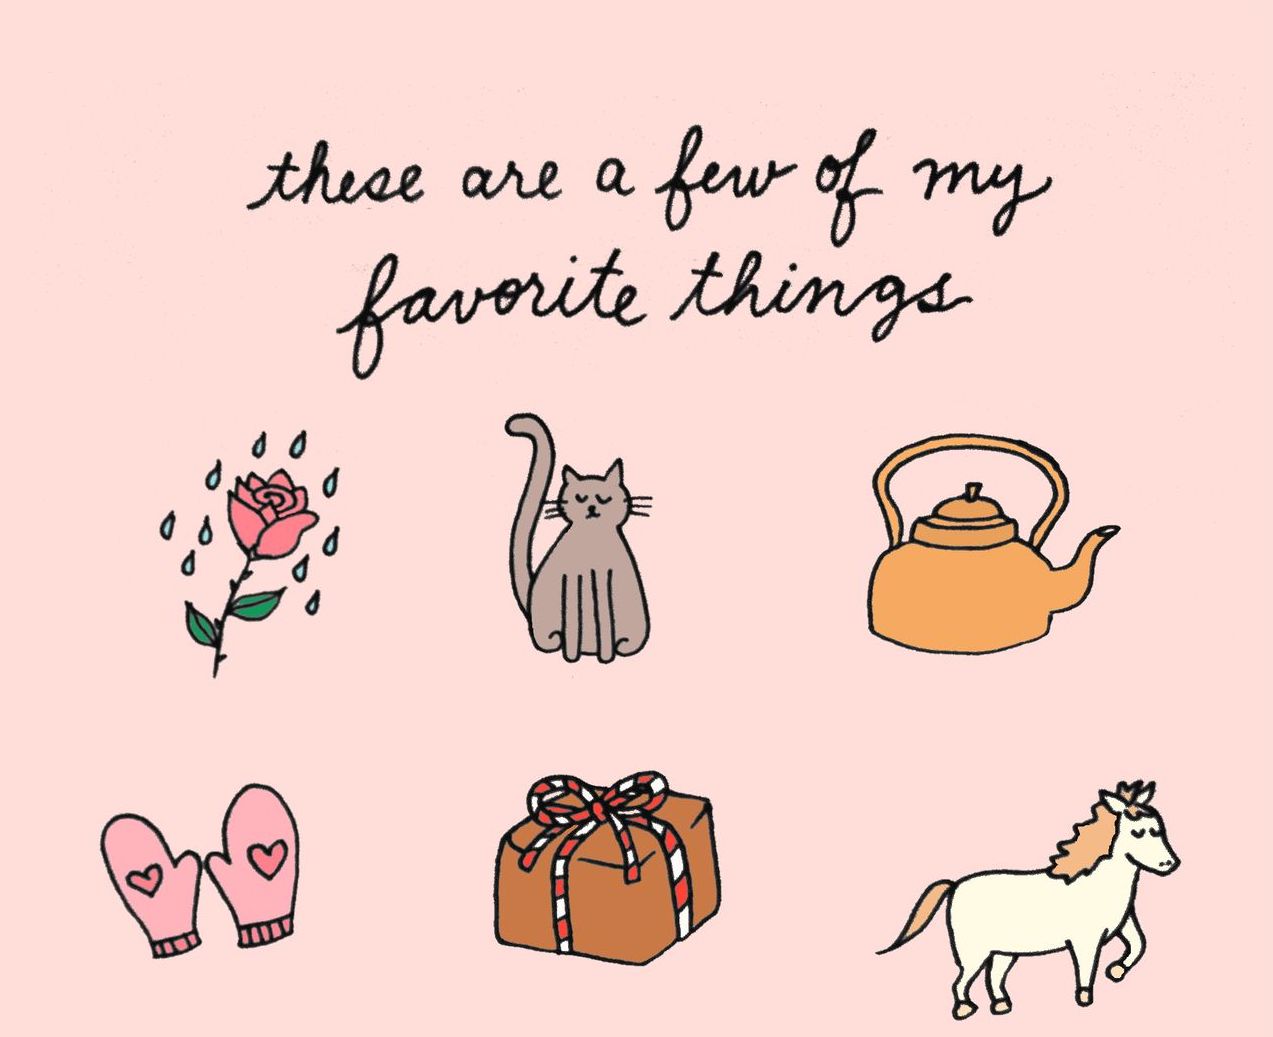 these are a few of my
favorite things